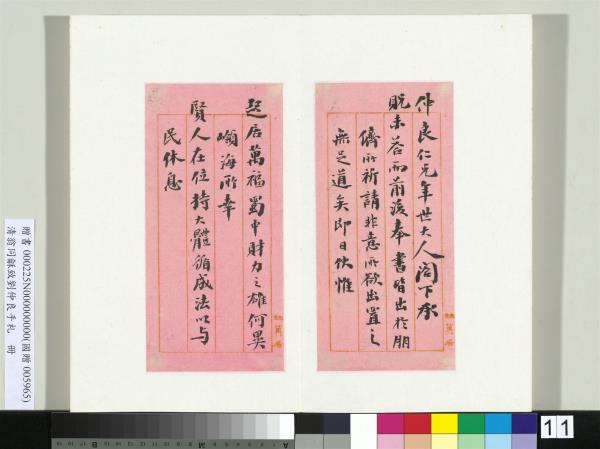 仲良仁兄年世大人閣下承
貺未荅而前後奉書皆出於朋
儕所祈請非意所欲出置之
無足道矣即日伏惟
起居萬福蜀中財力之雄何異
嶺海所幸
賢人在位持大體循成法以与
民休息
贈書 000225N000000000(國贈 005965)
清翁同龢致劉仲良手札 冊
11